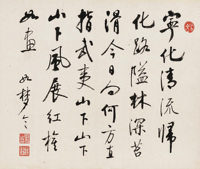 寧化清流歸
化路隘林深苔
滑今日向何方直
指武夷山下山下
山下風展紅旗
如畫
如夢令